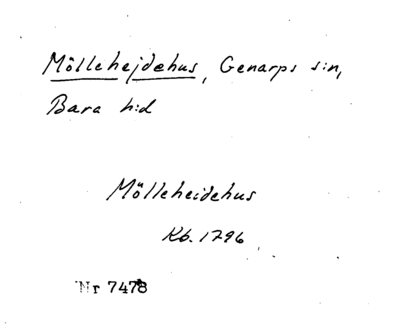 Möllehejdehus, Genarps s:n,
Bara h:d
Mölleheidehus
Kb. 1796
Nr 7478